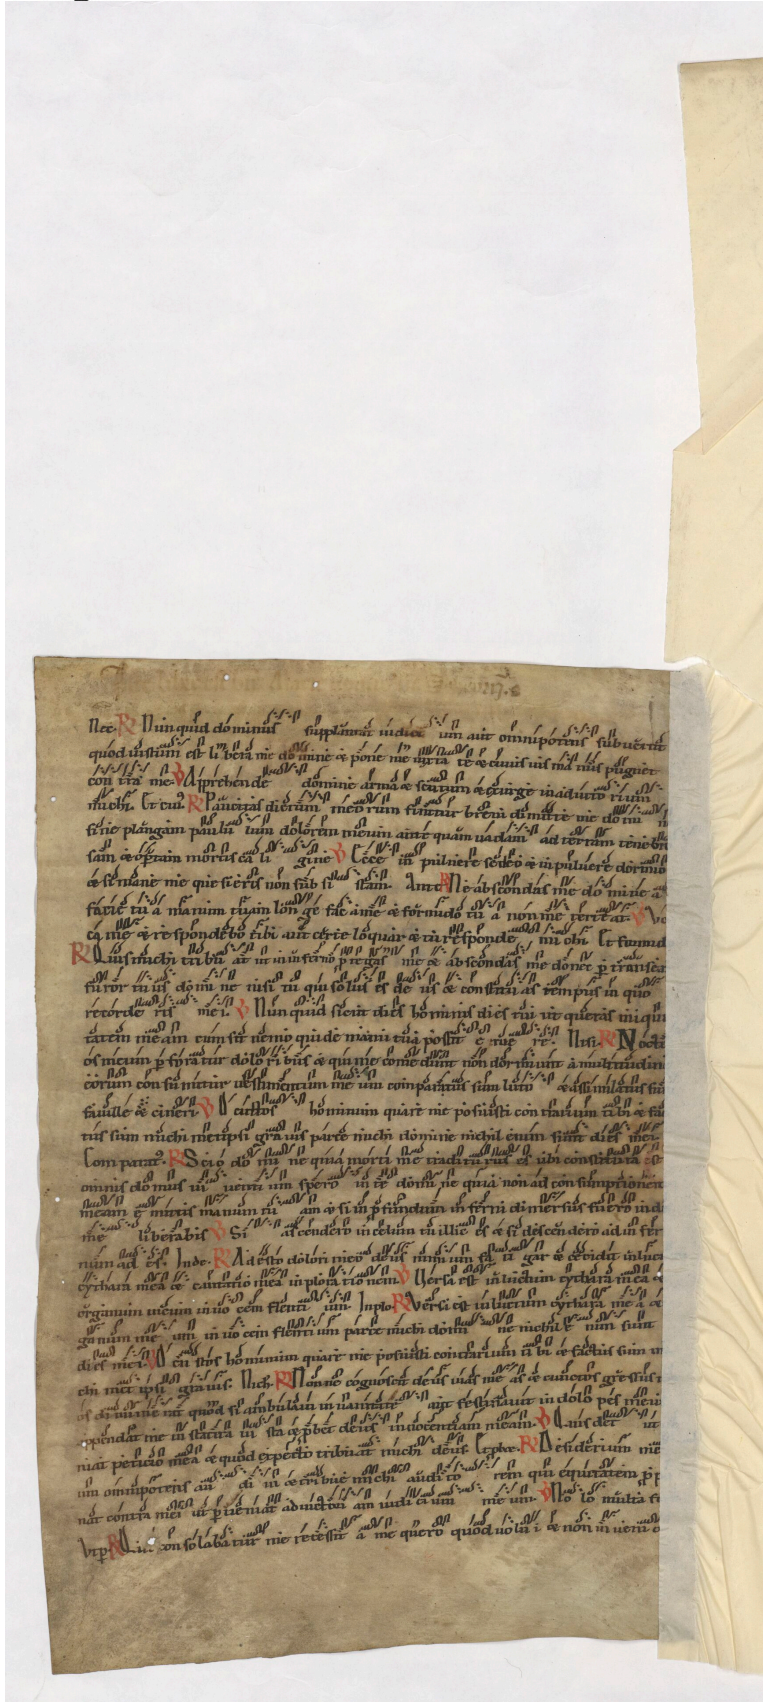 nec. R Nunquid dominus supplantat iudicium aut omnipotens subuertit
quod iustum est libera me domine & pone me iuxta te & cuius uis manus pugnet
contra me. V Apprehende domine arma & scutum & exurge in adiutorium
michi. Et cui9. R Paucitas dierum meorum finitur breui dimitte me domi
sine plangam paululum dolorem meum ante quam uadam ad terram tenebro
sam & optam mortis caligine V Ecce in puluere sedeo & in puluere dormio
& si mane me quesieris non subsistam. Ante R Ne abscondas me domine a
facie tua manum tuam longe fac a me & formido tua non me terreat. V Vo
ca me & respondebo tibi aut certe loquar & tu responde michi Et formid
R Quis michi tribuat ut in inferno protegas me & abscondas me donec pertransea
furor tuus domine nisi tu qui solus es deus & constituas tempus in quo
recorderis mei. V Nunquid sicut dies hominis dies tui ut queras iniqui
tatem meam cum sit nemo qui de manu tua possit eruere. Nisi. R Nocte
os meum perforatur doloribus & qui me comedunt non dormiunt a multitudini
eorum consumitur uestimentum meum comparatus sum luto & assimilatus su
fauille & cineri. V O custos hominum quare me posuisti contrarium tibi & fa
tus sum michi metipsi grauis parce michi domine nichil enim sunt dies mei.
Comparat9. R Scio domine quia morti me traditurus es ubi constituta est
omnis domus uiuentium spero in te domine quia non ad consumptionem
meam emittis manum tuam & si in profundum inferni dimersus fuero inde
me liberabis V Si ascendero in celum tu illic es & si descendero ad infer
num ades. Inde. R Adesto dolori meo deus nimium fatigar & cecidit in luct
cythara mea & cantatio mea in plorationem. V Uersa est in luctum cythara mea &
organum meum in uocem flentium. Inplo R Versa est in luctum cythara mea &
ganum meum in uocem flentium parce michi domine nichil enim sunt
dies mei. V O custos hominum quare me posuisti contrarium tibi & factus sum m
chi met ipsi grauis. Nich. R Nonne cognoscit deus uias meas & cunctos gressus m
os dinumerat quod si ambulaui in uanitate aut festinauit in dolo pes meus
appendat me in statera iusta & probet deus innocentiam meam. V Quis det ut
niat peticio mea & quod expecto tribuat michi deus. Et probe. R Desiderium me
um omnipotens audi & tribue michi auditorem qui equitatem pro
nat contra me ut perueniat ad uictoriam iudicium meum. V Nolo multa fo
Vt per. R Qui consolabatur me recessit a me quero quod uolui & non inuenio